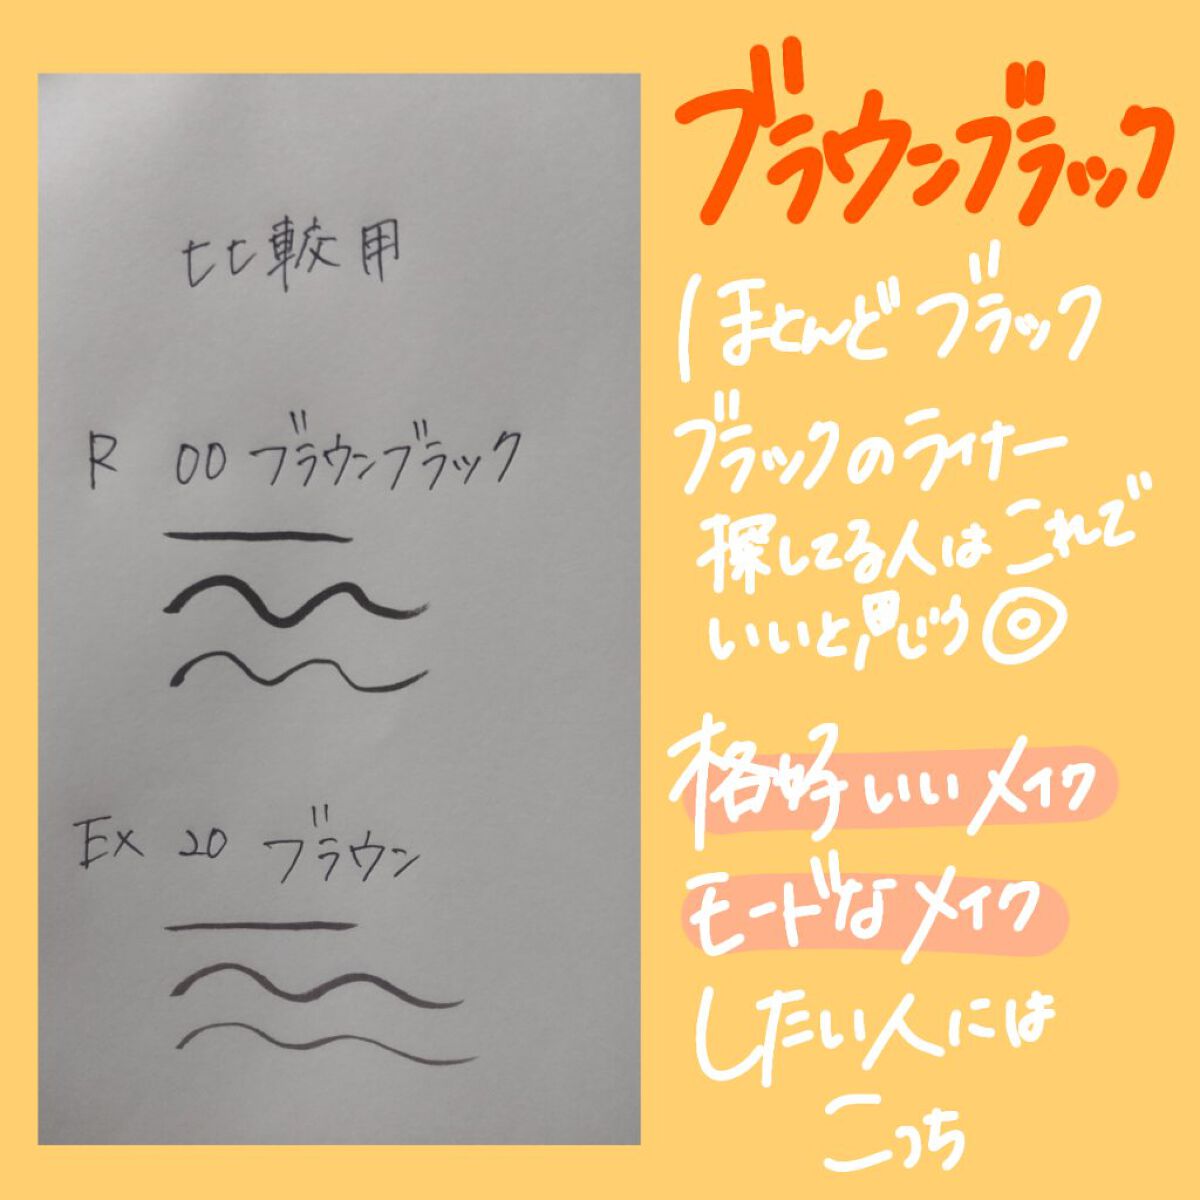 比較用
R 00 ブラウンブラック
Ex 20 ブラウン
ブラウンブラック
ほとんどブラック
ブラックのライナー
探してる人はこれで
いいと思う◎
格好いいメイク
モードなメイク
したい人には
こっち